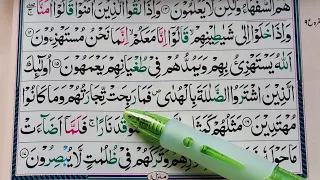 هُمُ السُّفَهَآءُ وَلٰكِنْ لَّا يَعْلَمُوْنَ وَاِذَا لَقُوا الَّذِيْنَ اٰمَنُوْا قَالُوْٓا اٰمَنَّا
وَاِذَا خَلَوْا اِلٰى شَيٰطِيْنِهِمْ قَالُوْٓا اِنَّا مَعَكُمْ اِنَّمَا نَحْنُ مُسْتَهْزِءُوْنَ
اَللّٰهُ يَسْتَهْزِئُ بِهِمْ وَيَمُدُّهُمْ فِيْ طُغْيَانِهِمْ يَعْمَهُوْنَ اُولٰٓئِكَ
الَّذِيْنَ اشْتَرَوُا الضَّلٰلَةَ بِالْهُدٰى فَمَا رَبِحَتْ تِّجَارَتُهُمْ وَمَا كَانُوْا
مُهْتَدِيْنَ مَثَلُهُمْ كَمَثَلِ نَارًا فَلَمَّآ اَضَآءَتْ
مَا حَوْلَهٗ وَتَرَكَهُمْ فِيْ ظُلُمٰتٍ لَّا يُبْصِرُوْنَ
منزل